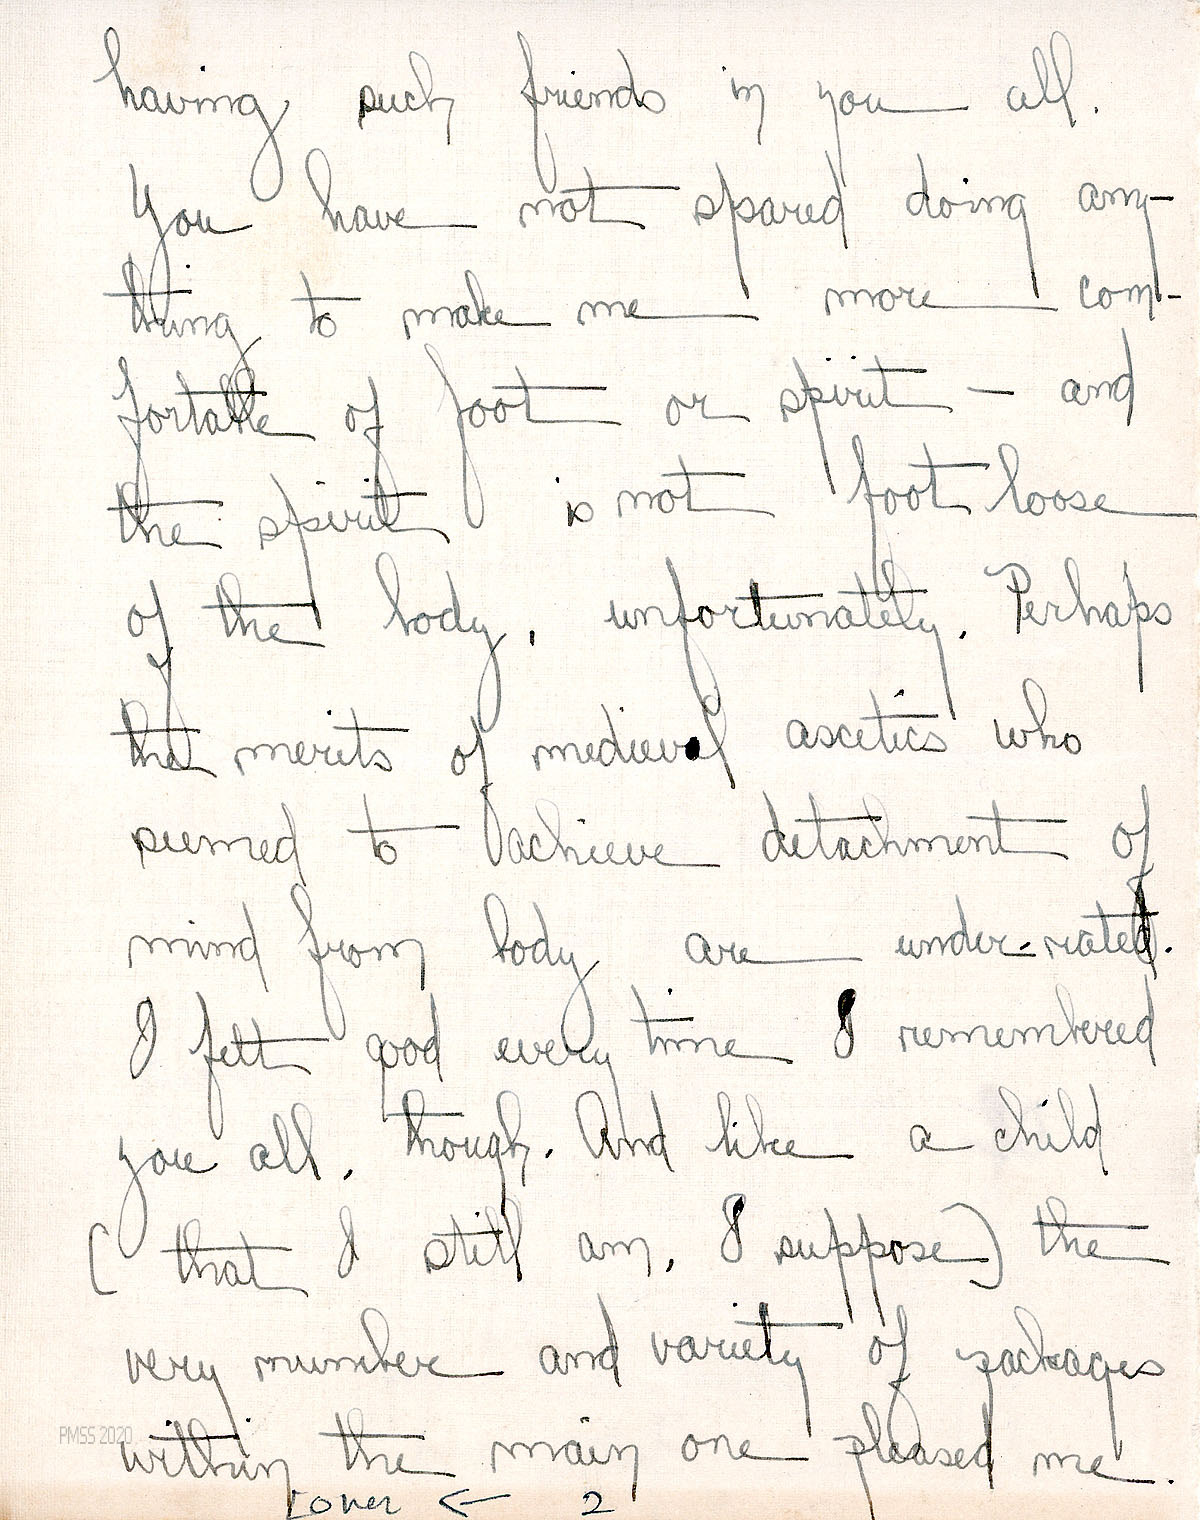 having such friends in you all.
You have not spared doing any-
thing to make me more com-
fortable of foot or spirit — and
the spirit is not foot loose
of the body, unfortunately. Perhaps
the merits of medieval ascetics who
seemed to achieve detachment of
mind from body are under-rated.
I felt good every time I remembered
you all, though. And like a child
( that I still am, I suppose) the
very number and variety of packages
within the main one pleased me.
PMSS 2020
[over ← 2